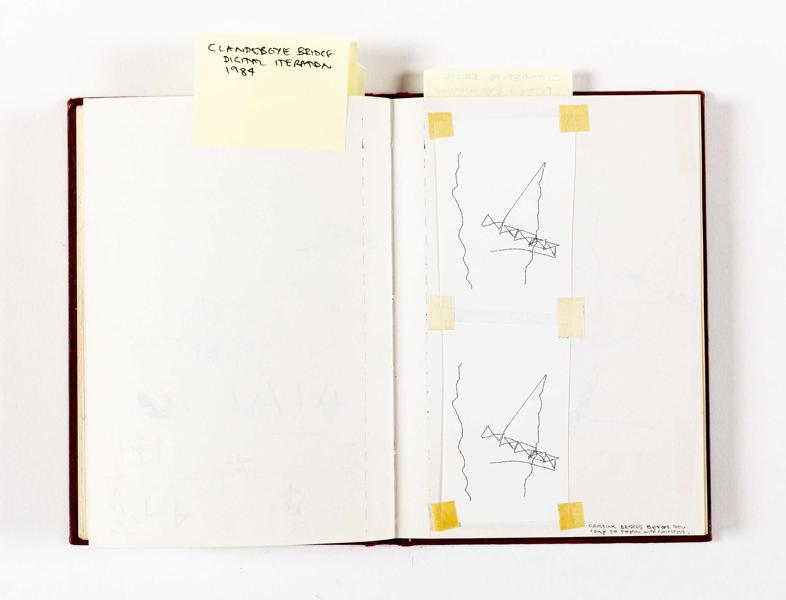 CLANDEBOYE BRIDGE
DIGITAL ITERATION
1984
CROSSING BRIDGES BEFORE YOU
COME TO THEM